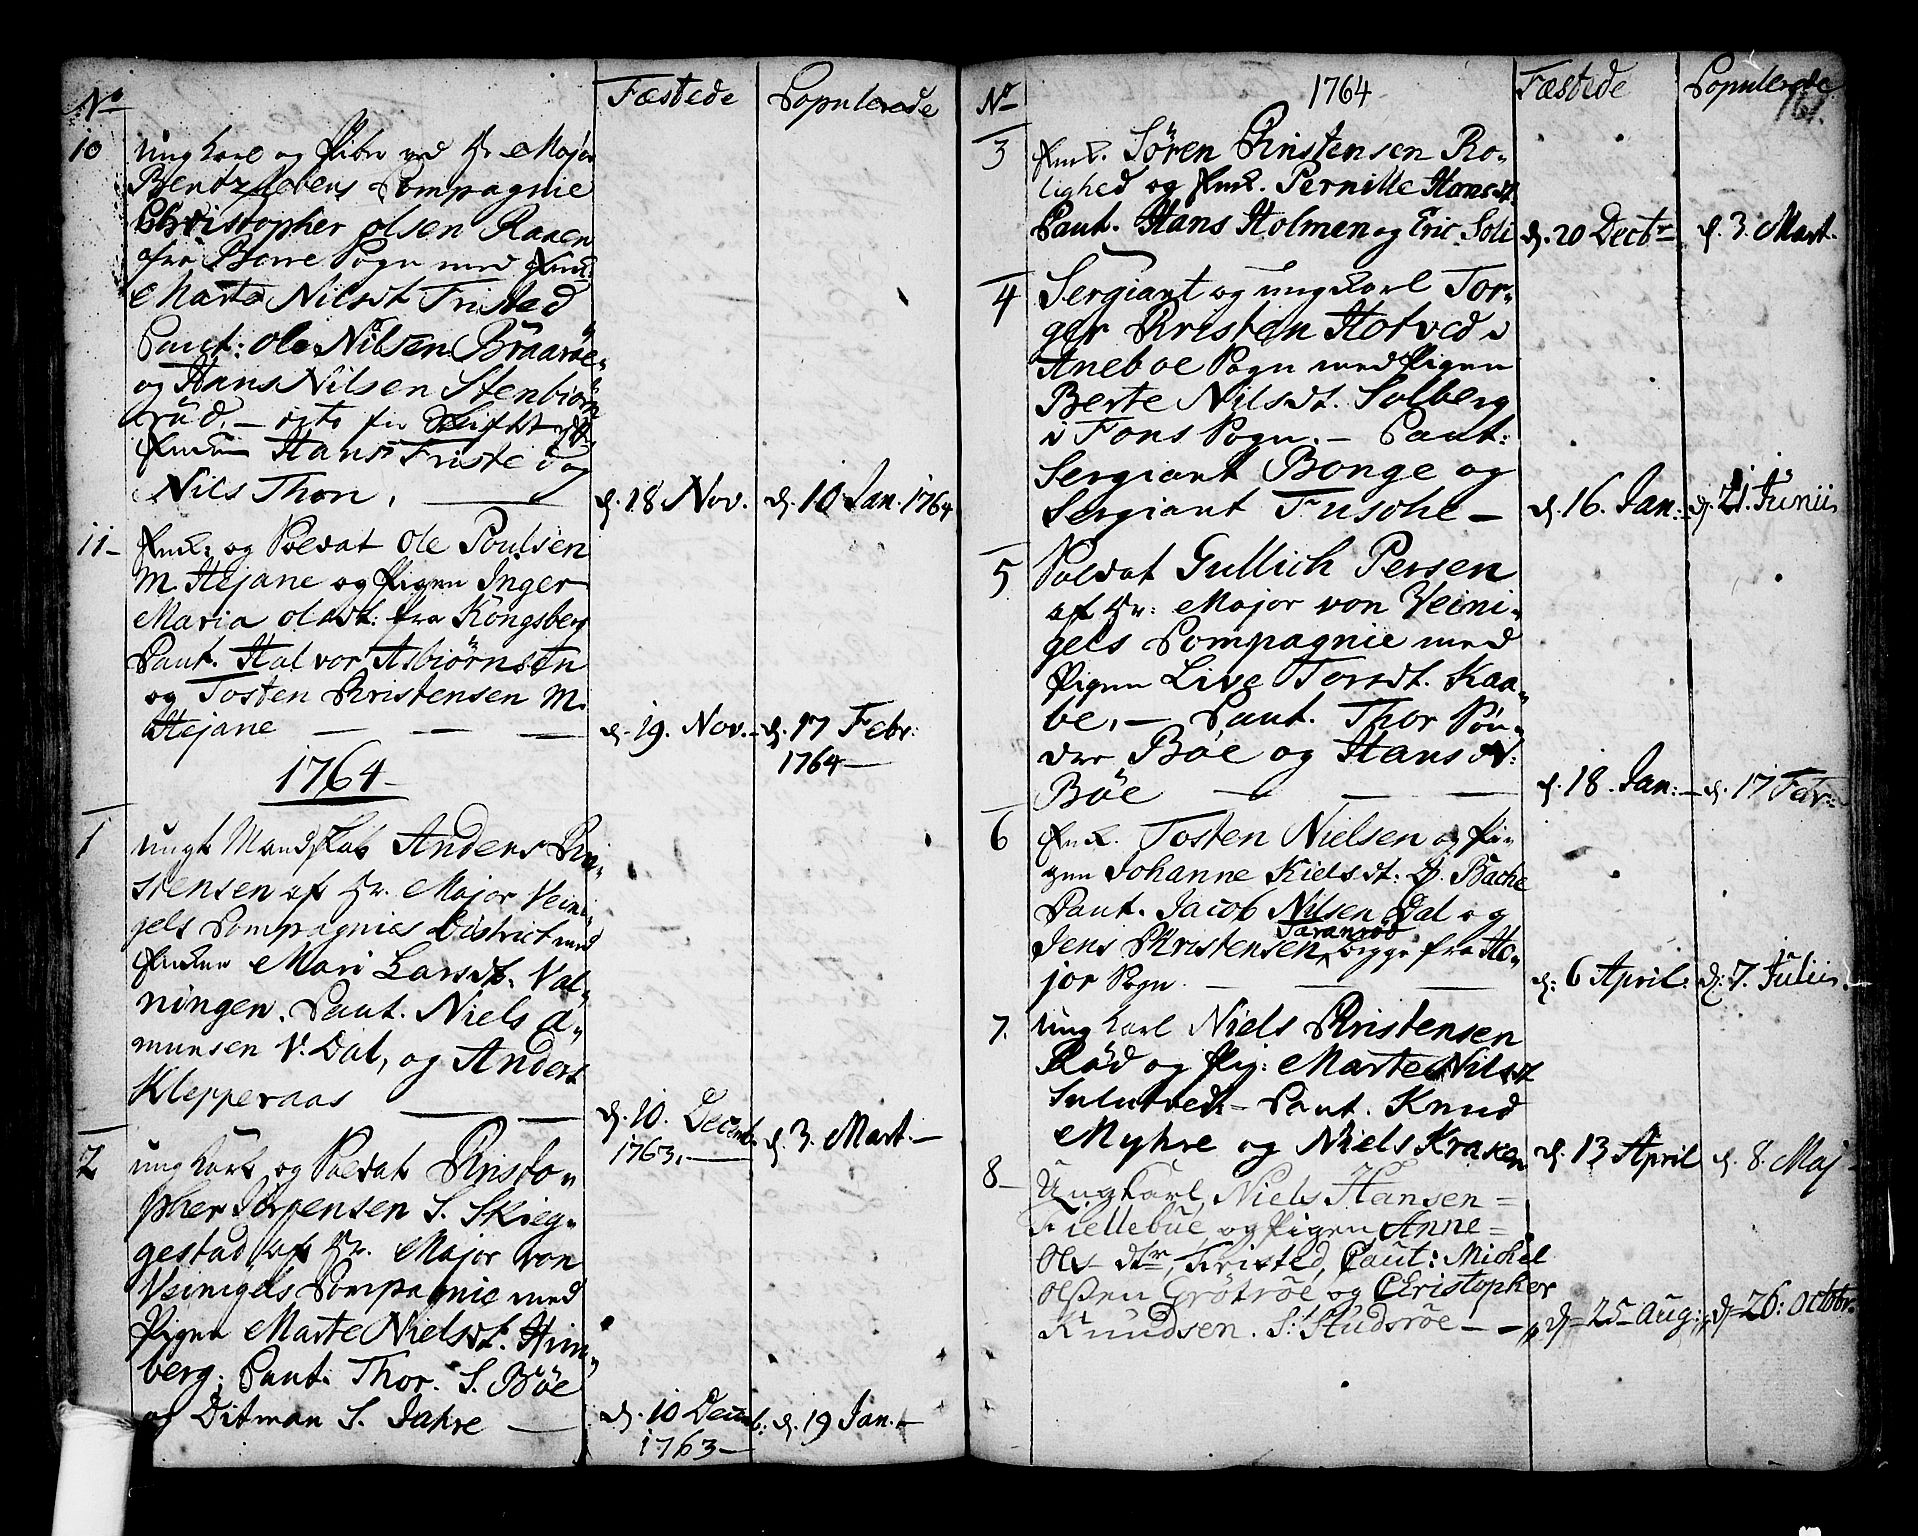 No
Fæstede
Populerede
10
ung Karl og Piber ved Hr Major
Bentzlebens Compagnie
Christopher Olsen Raaen
fra Borre Sogn med Enk:
Marte Nilsdt Fristed
Caut: Ole Nilsen Braarøe
og Hans Nilsen Stenbiørn-
rüd. — for Skifte
Enken Hans Friste og
Nils Thon.
d. 18 Nov.
d. 10 Jan. 1764
11
Enk: og Soldat Ole Poulsen
M. Hejane og Pigen Inger
Maria Olsdt: fra Kongsberg
Caut. Halvor Asbiørnsen
og Tosten Christensen M.
Hejane — — —
d. 19. Nov. —
d. 17 Febr:
1764 —
1764
1
ungt Mandskab Anders Chri-
stensen af Hr. Major Veini-
gels Compagnies District med
Enken Mari Larsdt. Val-
ningen. Caut. Niels A-
munsen V. Dal, og Anders
Klepperaas — —
d. 10. Decemb.
1763. —
d. 3. Mart. —
2
ung Karl og Soldat Christo-
pher Jørgensen S. Skieg-
gestad af Hr. Major von
Veinigels Compagnie med
Pigen Marte Nielsdt. Him-
berg. Caut. Thor. S. Bøe
og Ditman S. Jahre —
d. 10 Decemb:
1763 —
d. 19 Jan. —
No
1764
Fæstede
Populerede
161.
3
Enk. Søren Christensen Ro-
lighed og Enk. Pernille Hansdt.
Caut. Hans Holmen og Eric Soli
d. 20 Decbr
d. 3. Mart.
4
Sergiant og ung Karl Tor-
ger Christen Hotved i
Aneboe Sogn med Pigen
Berte Nilsdt. Solberg
i Fons Sogn. — Caut:
Sergiant Bonge og
Sergiant Fusche —
d. 16. Jan: —
d. 21. Junii
5
Soldat Gullich Persen
af Hr: Major von Veini-
gels Compagnie med
Pigen Live Torsdt. Kaa-
be. — Caut. Thor Søn-
dre Bøe og Hans N:
Bøe — — —
d. 18. Jan: —
d. 17 Febr:
6
Enk. Tosten Nielsen og Pi-
gen Johanne Kielsdt: Bache
Caut. Jacob Nilsen Dal og
Taranrød
Jens Christensen begge fra Ho-
jor Sogn. — — —
d: 6 April:
d: 7. Julii
7.
ung Karl Niels Christensen
Rød og Pig: Marte Nilsdt
Sulutvedt — Caut. Knud
Myhre og Niels Kraken
d. 13 April
d. 8. Maj
8
Ung Karl Niels Hansen
Kiellebüe og Pigen Anne
Ols dtr, Fristed, Caut: Michel
Olssen Grøtrøe og Christopher
Knudsen. S: Studsrøe —
d. 25 Aug:
d. 26: Octobr.